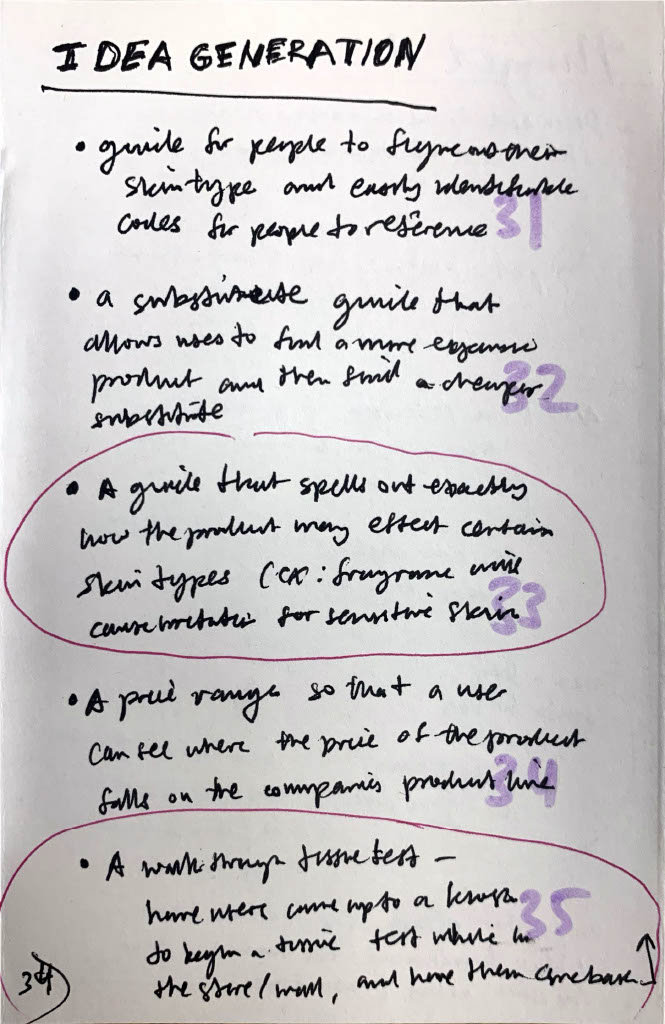 IDEA GENERATION
• guide for people to figure out their
skin type and easily identifiable
codes for people to reference 31
• a substitute guide that
allows users to find a more expensive
product and then find a cheaper 32
substitute
• A guide that spells out exactly
how the product may effect certain
skin types (ex: fragrance will
cause irritation for sensitive skin 33
• A price range so that a user
can see where the price of the product
falls on the companies product line 34
• A walk through tissue test –
have users come up to a kiosk 35
to begin a tissue test while in
the store/mall, and have them come back